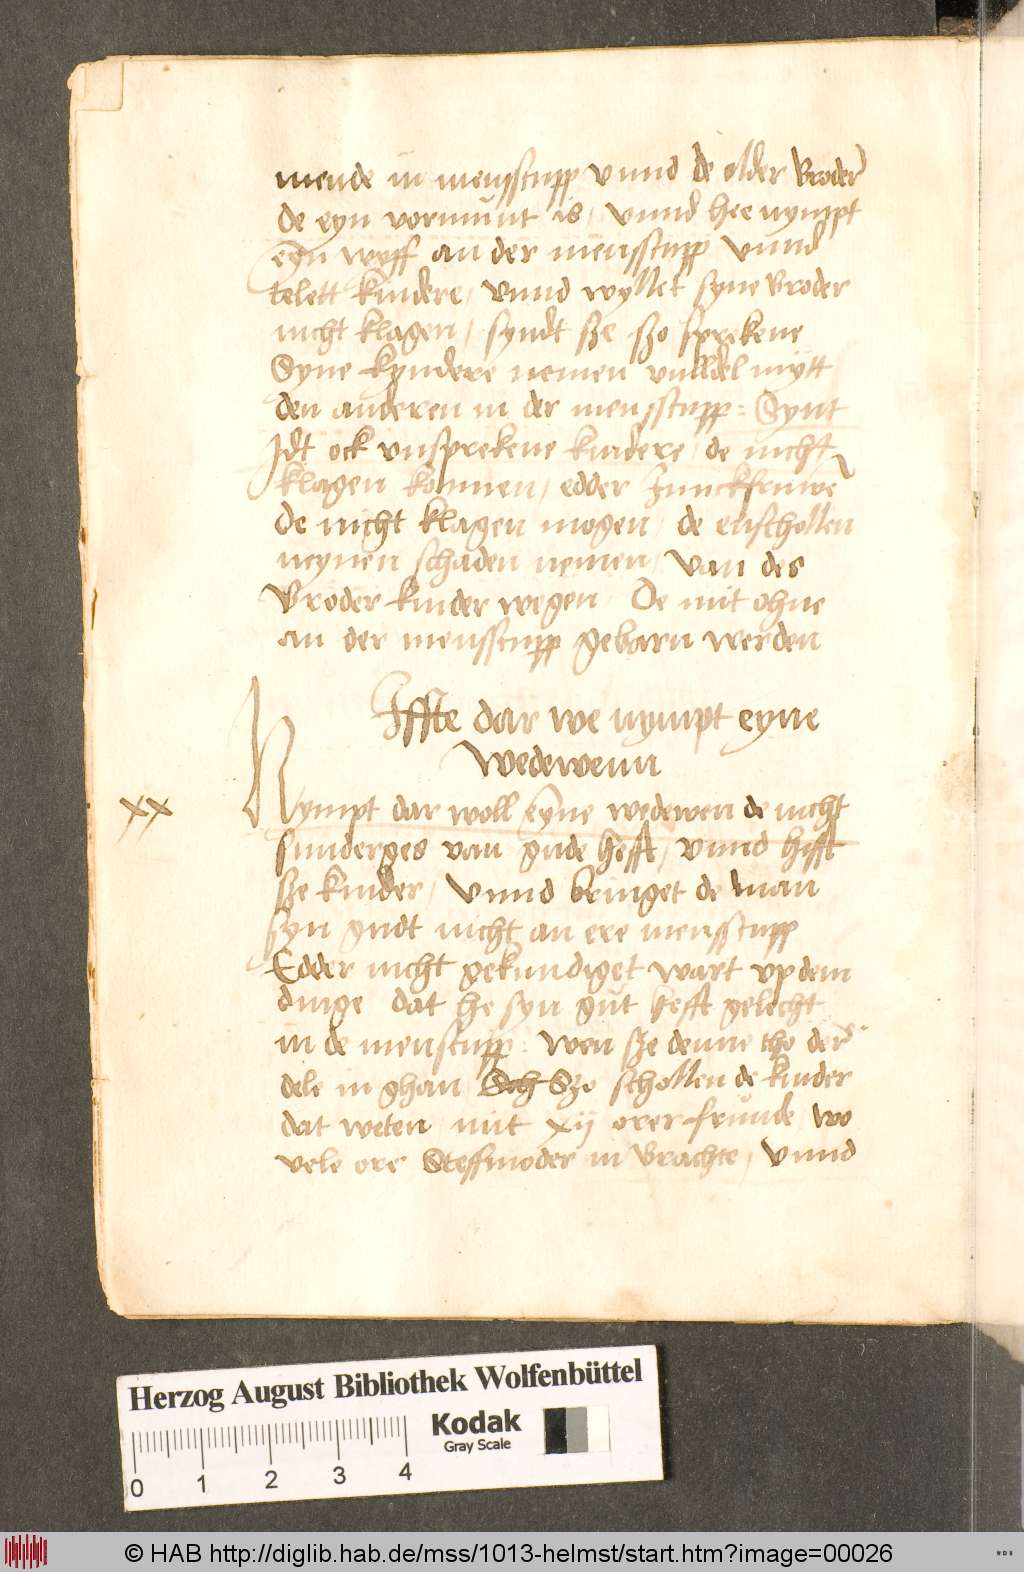 mende in mensscupp vnnd de older Broder
de eyn vormunt is / vnnd hee nympt
eyn wyff an der mensscupp vnnd
telett kindere / vnnd wyllet syne Broder
nicht klagen / syndt sze szo sprekene
Syne kyndere nemen vulldel mytt
den anderen in der mensscupp : Synt
Idt ock vnsprekene kindere / de nicht
klagen konnen / edder Junckfruwe
De nicht klagen mogen / de enschollen
neynen schaden nemen / van des
Broder kinder wegen De mit ohne
an der mensscupp gebarn werden
Iffte dar we nympt eyne
wedewenn
xx
Nympt dar woll eyne wedewen de nicht
sunderges van gude hefft / vnnd hifft
sze kinder / vnnd bringet de man
syn gudt nicht an ere mensscupp
Edder nicht gekundiget wart vp dem
dinge dat he syn gut hefft gelecht
in de menscupp : wen sze denne tho der
dele in ghan Sch Szo schollen de kinder
dat weten mit xij orer frunde wo
vele ore Steffmoder in Brachte / vnnd
Herzog August Bibliothek Wolfenbüttel
Kodak
Gray Scale
0 1 2 3 4
© HAB http://diglib.hab.de/mss/1013-helmst/start.htm?image=00026